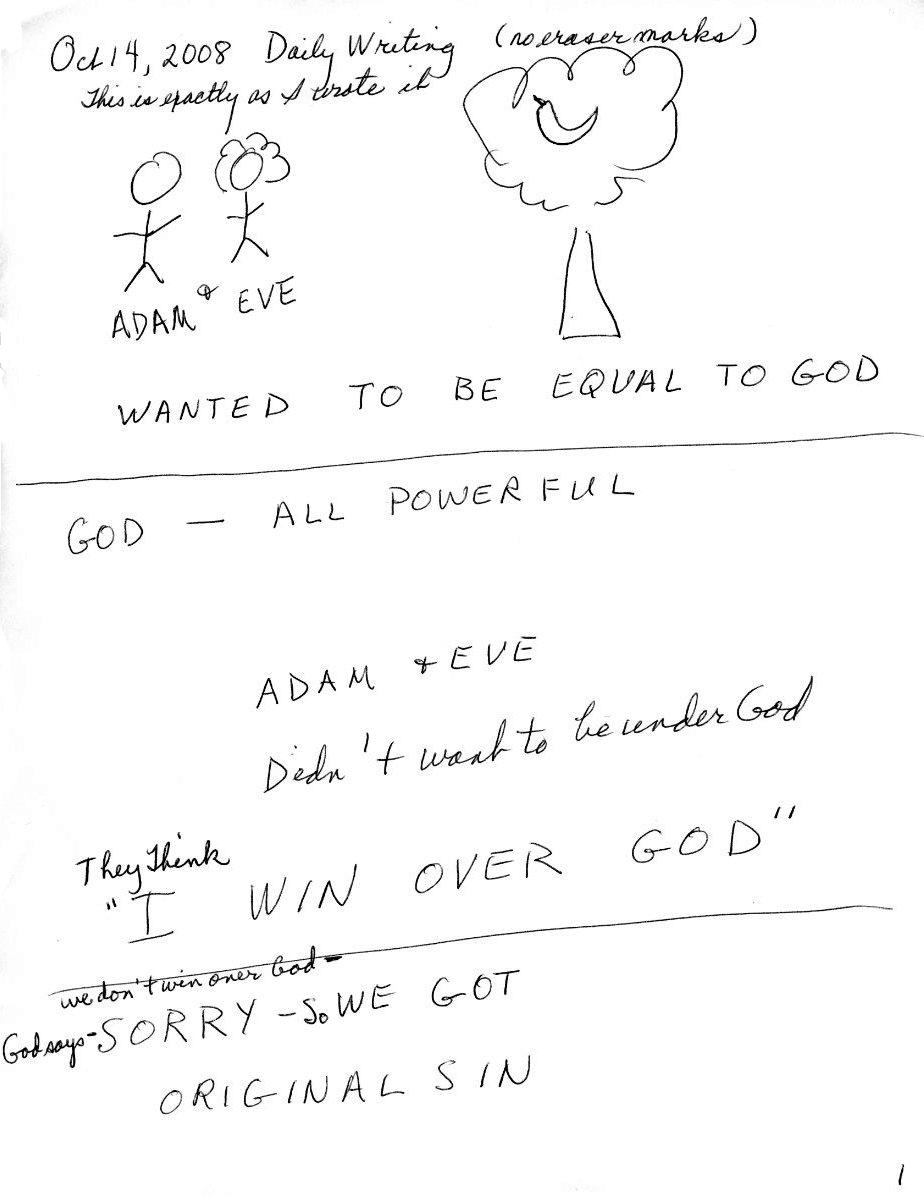 Oct 14, 2008 Daily Writing (no eraser marks)
This is exactly as I wrote it
ADAM & EVE
WANTED TO BE EQUAL TO GOD
GOD — ALL POWERFUL
ADAM & EVE
Didn't want to be under God
They Think
"I WIN OVER GOD"
we don't win over God -
God says - SORRY - So WE GOT
ORIGINAL SIN
1